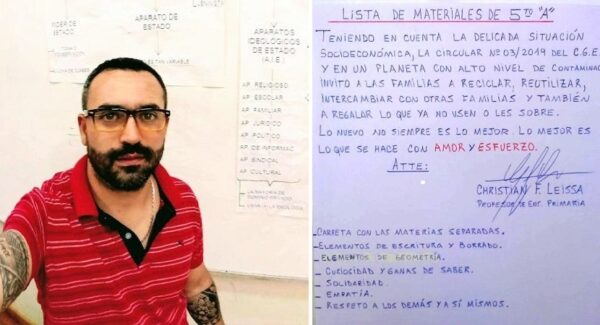 PODER DE
ESTADO
APARATO DE
ESTADO
APARATOS
IDEOLOGICOS
DE ESTADO
(A.I.E)
AP. RELIGIOSO
AP. ESCOLAR
AP. FAMILIAR
AP. JURIDICO
AP. POLITICO
AP. DE INFORMAC
AP. SINDICAL
AP. CULTURAL
LISTA DE MATERIALES DE 5TO "A"
TENIENDO EN CUENTA LA DELICADA SITUACIÓN
SOCIOECONÓMICA, LA CIRCULAR Nº 03/2019 DEL C.G.E.
Y EN UN PLANETA CON ALTO NIVEL DE CONTAMINAC
INVITO A LAS FAMILIAS A RECICLAR, REUTILIZAR,
INTERCAMBIAR CON OTRAS FAMILIAS Y TAMBIÉN
A REGALAR LO QUE YA NO USEN O LES SOBRE.
LO NUEVO NO SIEMPRE ES LO MEJOR. LO MEJOR ES
LO QUE SE HACE CON AMOR Y ESFUERZO.
ATTE:
CHRISTIAN F. LEISSA
PROFESOR DE ENS. PRIMARIA
- CARPETA CON LAS MATERIAS SEPARADAS.
- ELEMENTOS DE ESCRITURA Y BORRADO.
- ELEMENTOS DE GEOMETRÍA.
- CURIOSIDAD Y GANAS DE SABER.
- SOLIDARIDAD.
- EMPATÍA.
- RESPETO A LOS DEMÁS Y A SÍ MISMOS.